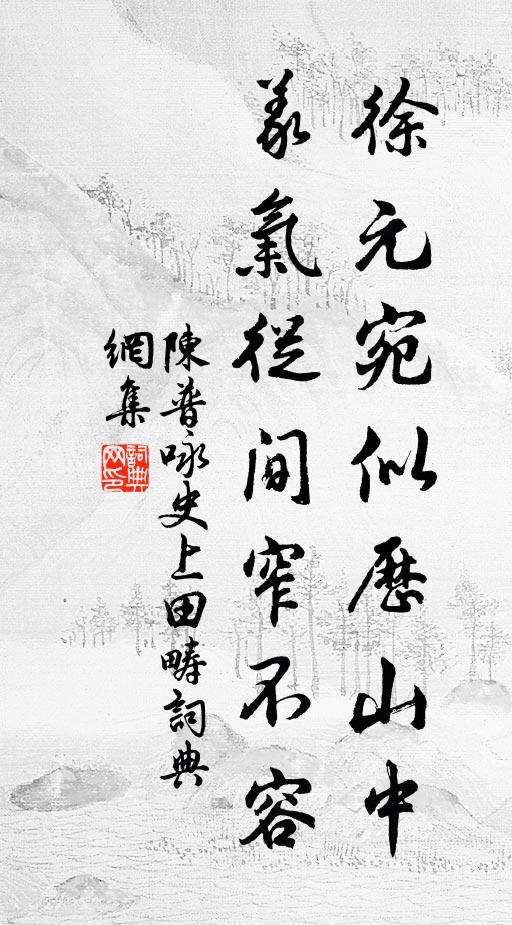 徐元宛似歷山中
義氣從間窄不容
陳普咏史上田疇詞典
網集
詞典
网印